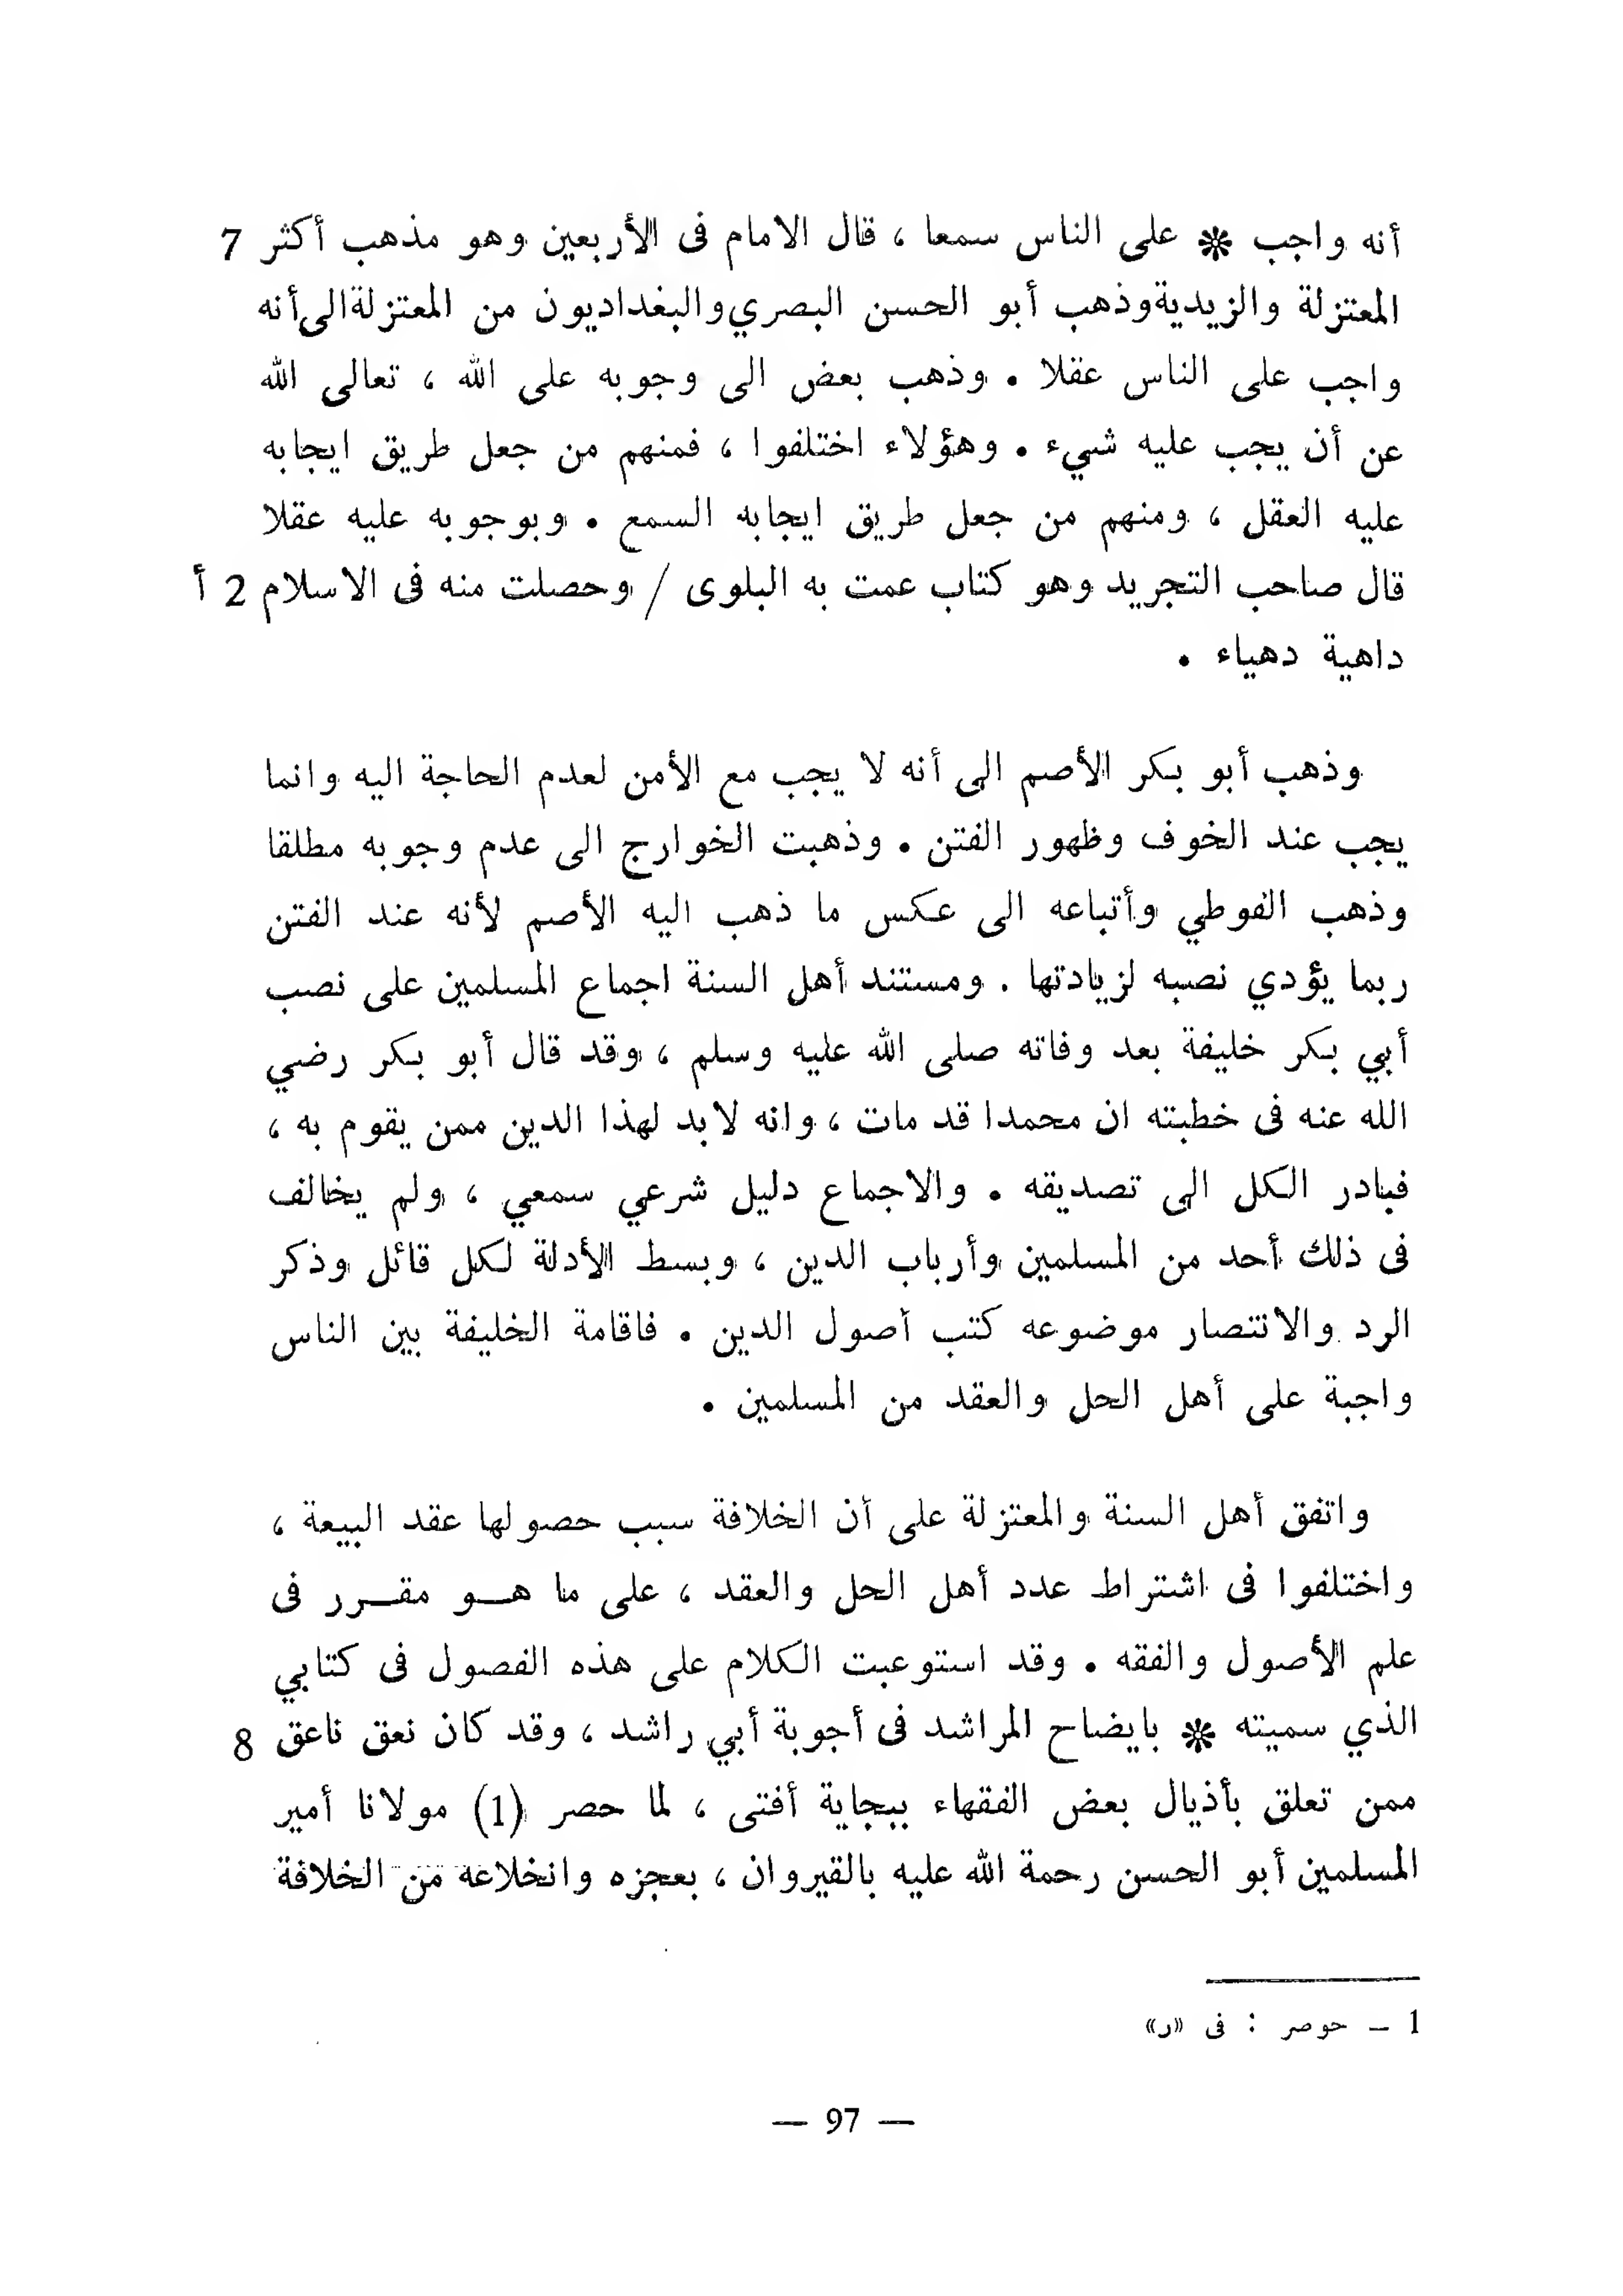 أنه واجب * على الناس سمعا ، قال الامام فى الأربعين وهو مذهب أكثر 7
المعتزلة والزيدية وذهب أبو الحسن البصري والبغداديون من المعتزلة الى أنه
واجب على الناس عقلا . وذهب بعض الى وجوبه على الله ، تعالى الله
عن أن يجب عليه شيء . وهؤلاء اختلفوا ، فمنهم من جعل طريق ايجابه
عليه العقل ، ومنهم من جعل طريق ايجابه السمع . وبوجوبه عليه عقلا
قال صاحب التجريد وهو كتاب عمت به البلوى / وحصلت منه فى الاسلام 2 أ
داهية دهياء .
وذهب أبو بكر الأصم الى أنه لا يجب مع الأمن لعدم الحاجة اليه وانما
يجب عند الخوف وظهور الفتن . وذهبت الخوارج الى عدم وجوبه مطلقا
وذهب الفوطي وأتباعه الى عكس ما ذهب اليه الأصم لأنه عند الفتن
ربما يؤدي نصبه لزيادتها . ومستند أهل السنة اجماع المسلمين على نصب
أبي بكر خليفة بعد وفاته صلى الله عليه وسلم ، وقد قال أبو بكر رضي
الله عنه فى خطبته ان محمدا قد مات ، وانه لابد لهذا الدين ممن يقوم به ،
فبادر الكل الى تصديقه . والاجماع دليل شرعي سمعي ، ولم يخالف
فى ذلك أحد من المسلمين وأرباب الدين ، وبسط الأدلة لكل قائل وذكر
الرد والانتصار موضوعه كتب أصول الدين . فاقامة الخليفة بين الناس
واجبة على أهل الحل والعقد من المسلمين .
واتفق أهل السنة والمعتزلة على أن الخلافة سبب حصولها عقد البيعة ،
واختلفوا فى اشتراط عدد أهل الحل والعقد ، على ما هـو مقـرر فى
علم الأصول والفقه . وقد استوعبت الكلام على هذه الفصول فى كتابي
الذي سميته * بايضاح المراشد فى أجوبة أبي راشد ، وقد كان نعق ناعق 8
ممن تعلق بأذيال بعض الفقهاء ببجاية أفتى ، لما حصر (1) مولانا أمير
المسلمين أبو الحسن رحمة الله عليه بالقيروان ، بعجزه وانخلاعه من الخلافة
1 — حوصر : فى «ر»
— 97 —